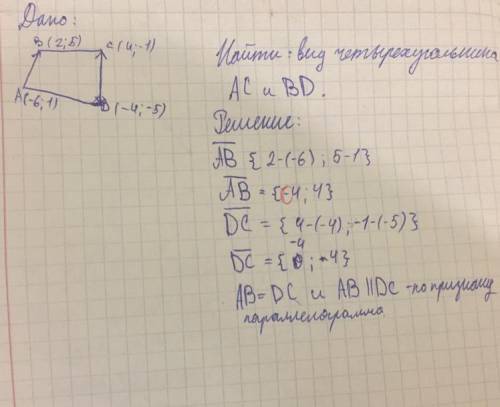 Дано:
B(2;5) C(4;-1)
A(-6;1) D(-4;-5)
Найти: вид четырехугольника
AC и BD.
Решение:
AB {2-(-6); 5-1}
AB = {-4; 4}
DC = {4-(-4); -1-(-5)}
-4
DC = {0; -4}
AB=DC и AB||DC -по признаку
параллелограмма